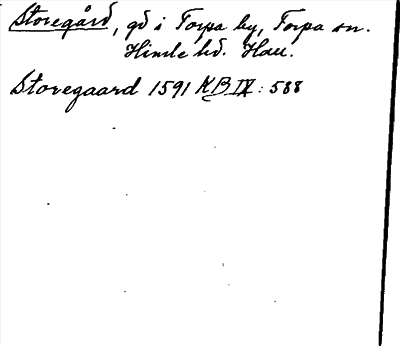 Storegård, gd i Torpa by, Torpa sn.
Himle hd. Hall.
Storegaard 1591 KB IX: 588